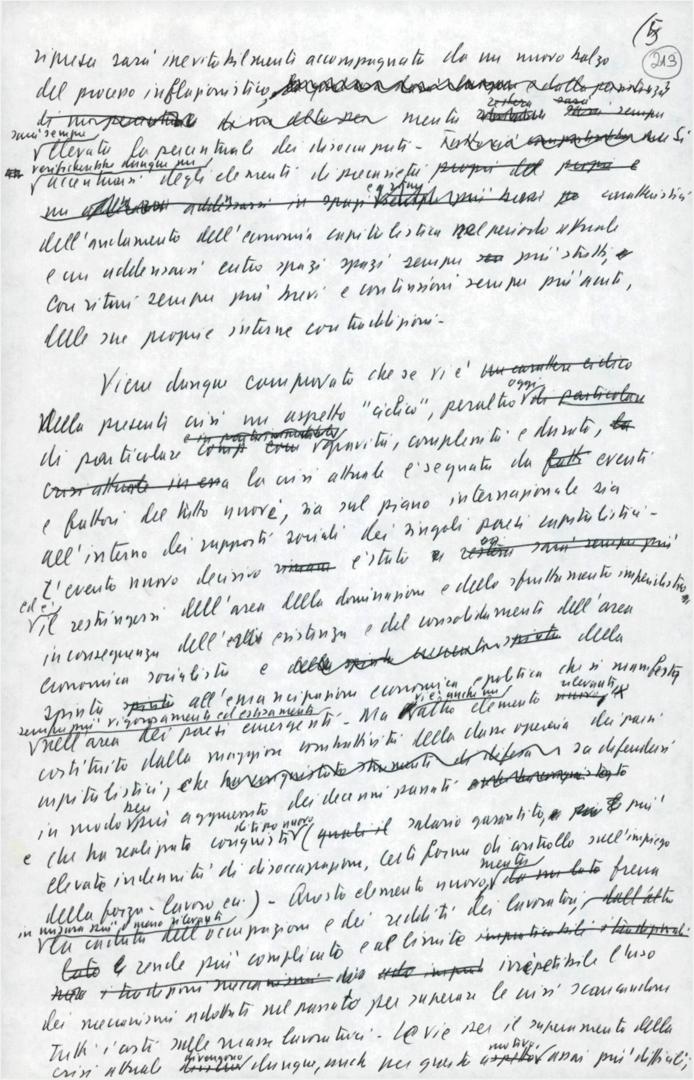 15
213
ripresa sarà inevitabilmente accompagnata da un nuovo balzo
del processo inflazionistico,
mentre resterà
sarà sempre
elevata la percentuale dei disoccupati - Si
verificherebbe dunque un
accentuarsi degli elementi di precarietà caratteristici
dell'andamento dell'economia capitalistica nel periodo attuale
e un addensarsi entro spazi spazi sempre più stretti,
con ritmi sempre più brevi e contrazioni sempre più acute,
delle sue proprie interne contraddizioni -
Viene dunque comprovato che se vi è un carattere ciclico
oggi
nella presente crisi un aspetto "ciclico", peraltro di particolare
di particolare gravità, complessità e durata, la
crisi attuale in essa la crisi attuale è segnata da fatti eventi
e fattori del tutto nuovi, sia sul piano internazionale sia
all'interno dei rapporti sociali dei singoli paesi capitalistici -
L'evento nuovo decisivo rimane è stato
ed è
il restringersi dell'area della dominazione e dello sfruttamento imperialistico,
in conseguenza dell'esistenza e del consolidamento dell'area
economica socialista e della
spinta spinta all'emancipazione economica e politica che si manifesta
sempre più vigorosamente ed estesamente
nell'area dei paesi emergenti - Ma altro elemento
vi è anche un
rilevante,
nuovo,
costituito dalla maggiore combattività della classe operaia dei paesi
capitalistici, che ha conquistato strumenti di difesa sa difendersi
in modo ben più agguerrito dei decenni passati
e che ha realizzato conquiste (quali il salario garantito, più
di tipo nuovo
elevate indennità di disoccupazione, certe forme di controllo sull'impiego
della forza-lavoro ecc.) - Questo elemento nuovo, da un lato frena
mentre
in misura più o meno rilevante
la caduta dell'occupazione e dei redditi dei lavoratori, dall'altro
lato rende più complicato e al limite
irripetibile l'uso
dei meccanismi adottati nel passato per superare le crisi scaricandone
tutti i costi sulle masse lavoratrici - Le vie per il superamento della
crisi attuale divengono dunque, anche per questo motivo assai più difficili,